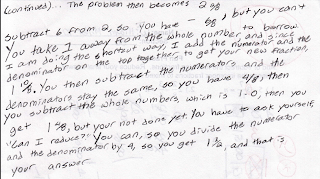 (continued)... The problem then becomes 2 2/8
- 5/8, but you can't
subtract 6 from 2, so you have to borrow.
You take 1 away from the whole number, and since
I am doing the shortcut way, I add the numerator and the
denominator on the top together, to get your new fraction,
1 10/8. You then subtract the numerators, and the
denominators stay the same, so you have 4/8, then
you subtract the whole numbers, which is 1-0, then you
get 1 4/8, but your not done yet. You have to ask yourself,
"Can I reduce?" You can, so you divide the numerator
and the denominator by 4, so you get 1 1/2, and that is
your answer.